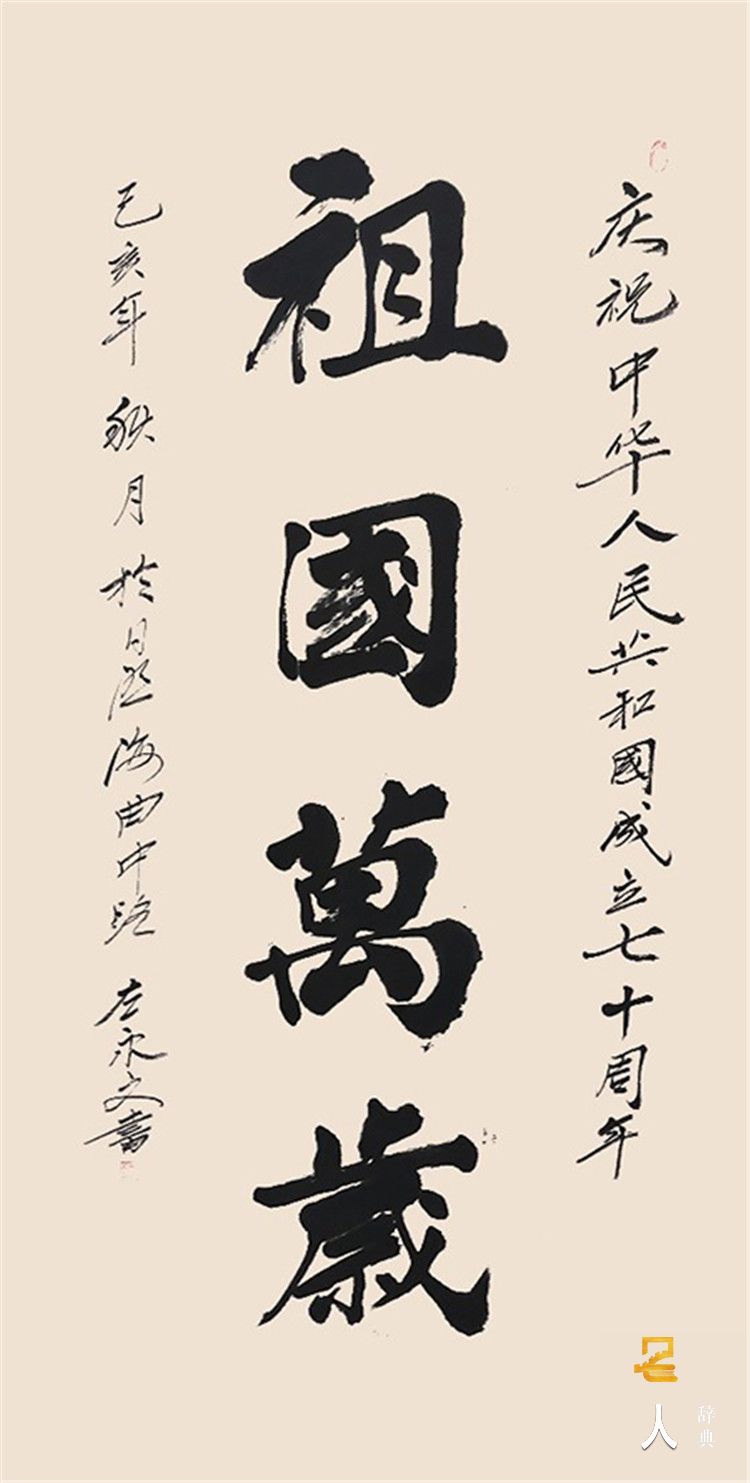 庆祝中华人民共和國成立七十周年
祖國萬歲
己亥年秋月於日照海曲中路
左永文書
名人
辞典